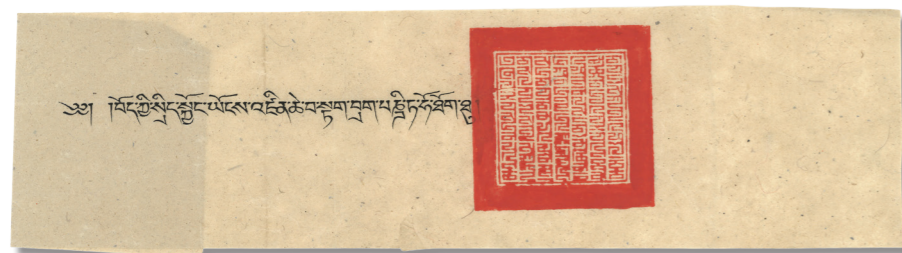 ༄༅། །བོད་ཀྱི་སྲིད་སྐྱོང་ཡོངས་འཛིན་ཆེ་བ་སྟག་བྲག་པཎྜི་ཏ་ཧོ་ཐོག་ཐུ།